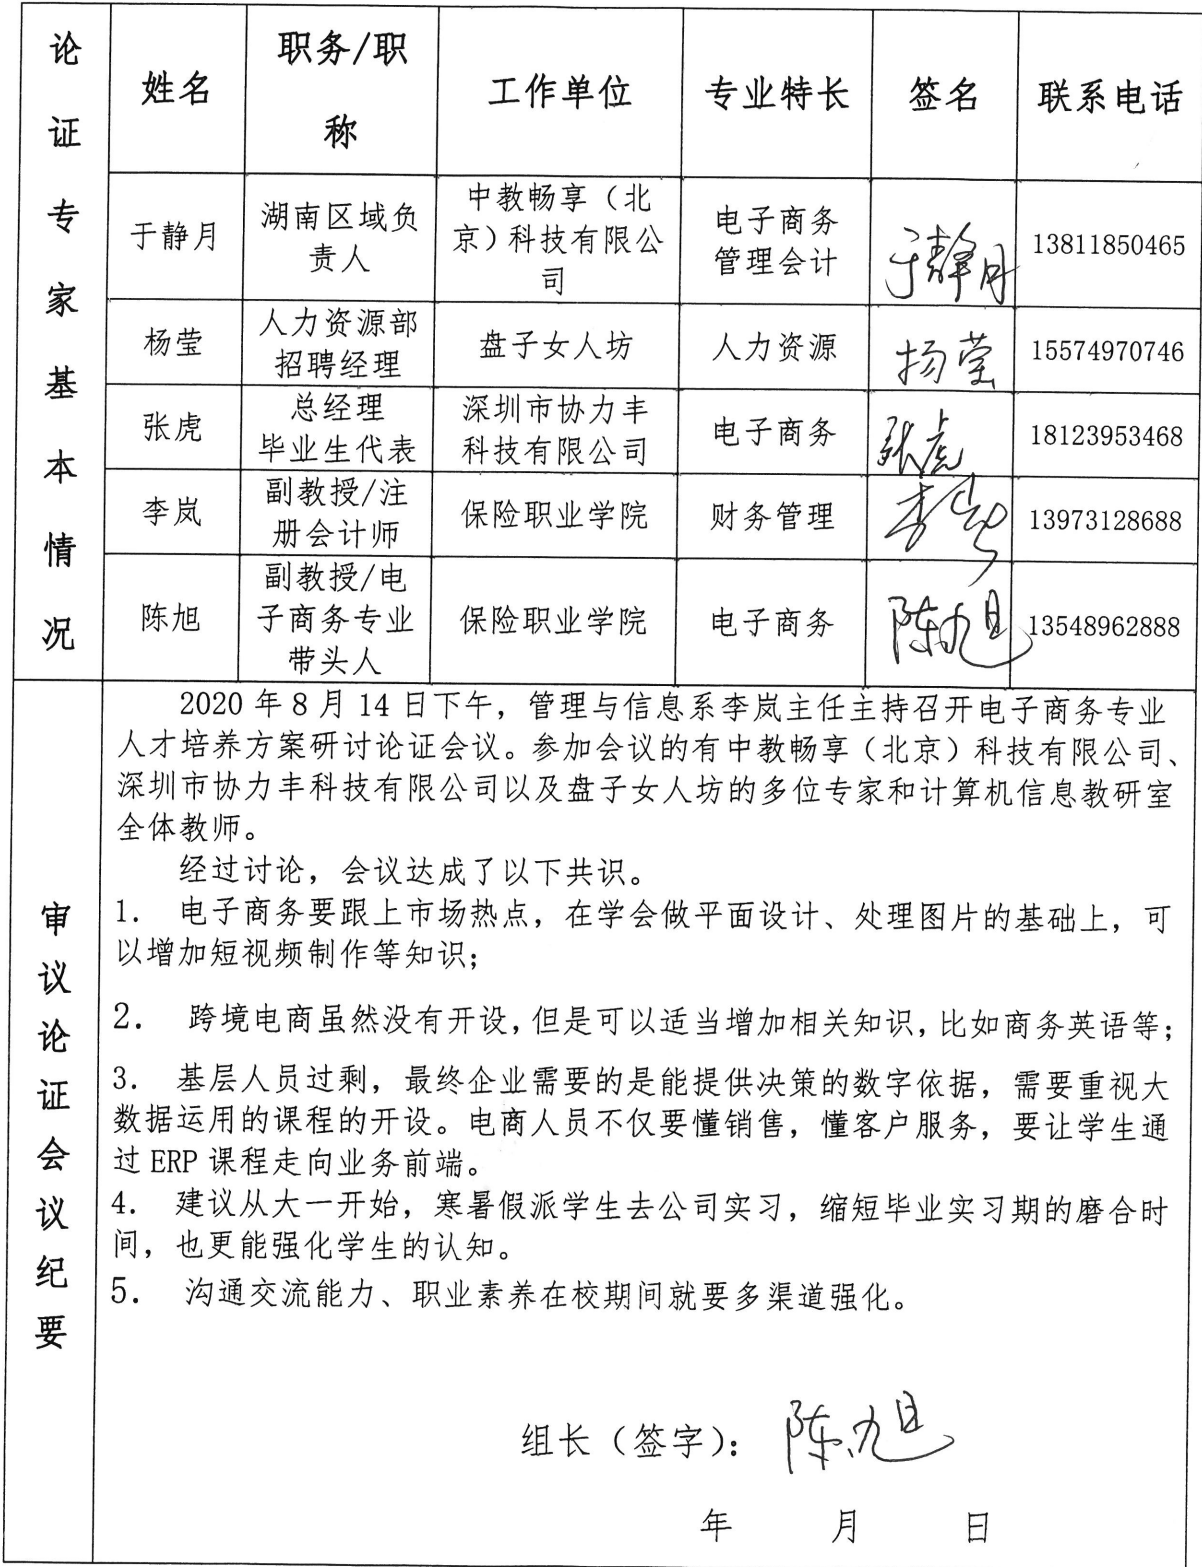 论证专家基本情况
姓名 职务/职称 工作单位 专业特长 签名 联系电话
于静月 湖南区域负责人 中教畅享（北京）科技有限公司 电子商务 管理会计 于静月 13811850465
杨莹 人力资源部招聘经理 盘子女人坊 人力资源 杨莹 15574970746
张虎 总经理 毕业生代表 深圳市协力丰科技有限公司 电子商务 张虎 18123953468
李岚 副教授/注册会计师 保险职业学院 财务管理 李岚 13973128688
陈旭 副教授/电子商务专业带头人 保险职业学院 电子商务 陈旭 13548962888
审议论证会议纪要
2020年8月14日下午，管理与信息系李岚主任主持召开电子商务专业
人才培养方案研讨论证会议。参加会议的有中教畅享（北京）科技有限公司、
深圳市协力丰科技有限公司以及盘子女人坊的多位专家和计算机信息教研室
全体教师。
经过讨论，会议达成了以下共识。
1. 电子商务要跟上市场热点，在学会做平面设计、处理图片的基础上，可
以增加短视频制作等知识；
2. 跨境电商虽然没有开设，但是可以适当增加相关知识，比如商务英语等；
3. 基层人员过剩，最终企业需要的是能提供决策的数字依据，需要重视大
数据运用的课程的开设。电商人员不仅要懂销售，懂客户服务，要让学生通
过ERP课程走向业务前端。
4. 建议从大一开始，寒暑假派学生去公司实习，缩短毕业实习期的磨合时
间，也更能强化学生的认知。
5. 沟通交流能力、职业素养在校期间就要多渠道强化。
组长（签字）：陈旭
年 月 日